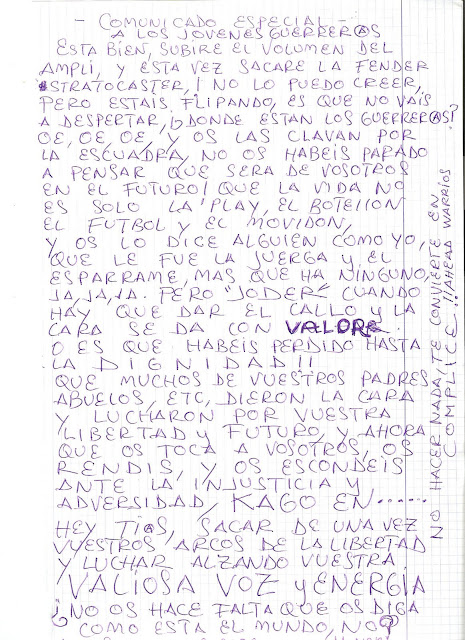 - COMUNICADO ESPECIAL -
A LOS JOVENES GUERRER@S
ESTA BIEN, SUBIRE EL VOLUMEN DEL
AMPLI, Y ESTA VEZ SACARE LA FENDER
STRATOCASTER, ¡NO LO PUEDO CREER,
PERO ESTAIS FLIPANDO, ES QUE NO VAIS
A DESPERTAR, ¿DONDE ESTAN LOS GUERRER@S?
OE, OE, OE, Y OS LAS CLAVAN POR
LA ESCUADRA, NO OS HABEIS PARADO
A PENSAR QUE SERA DE VOSOTROS
EN EL FUTURO! QUE LA VIDA NO
ES SOLO LA PLAY, EL BOTELLON
EL FUTBOL Y EL MOVIDON,
Y OS LO DICE ALGUIEN COMO YO,
QUE LE FUE LA JUERGA Y EL
ESPARRAME, MAS QUE HA NINGUNO,
JA, JA, JA. PERO "JODER" CUANDO
HAY QUE DAR EL CALLO Y LA
CARA SE DA CON VALOR.
O ES QUE HABEIS PERDIDO HASTA
LA DIGNIDAD!!
QUE MUCHOS DE VUESTROS PADRES,
ABUELOS, ETC, DIERON LA CARA
Y LUCHARON POR VUESTRA
LIBERTAD Y FUTURO, Y AHORA
QUE OS TOCA A VOSOTROS, OS
RENDIS, Y OS ESCONDEIS
ANTE LA INJUSTICIA Y
ADVERSIDAD, KAGO EN......
HEY TI@S, SACAR DE UNA VEZ
VUESTROS ARCOS DE LA LIBERTAD
Y LUCHAR ALZANDO VUESTRA
VALIOSA VOZ Y ENERGIA
¿NO OS HACE FALTA QUE OS DIGA
COMO ESTA EL MUNDO, NO?
NO HACER NADA, TE CONVIERTE EN
COMPLICE!!! AHEAD WARRIOS